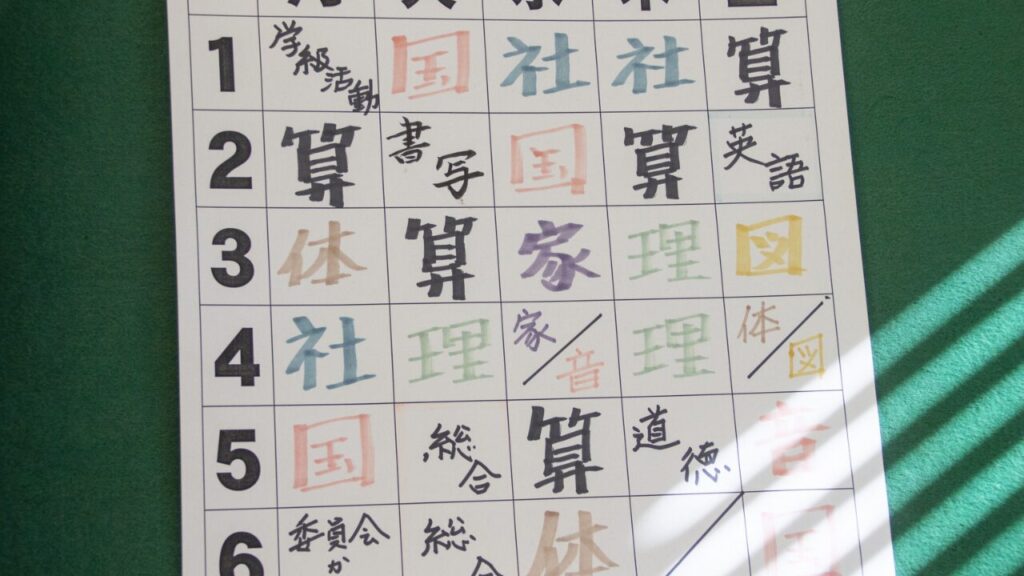 1 学級活動 国 社 社 算
2 算 書写 国 算 英語
3 体 算 家 理 図
4 社 理 家/音 理 体/図
5 国 総合 算 道徳 音
6 委員会か 総合 体 国